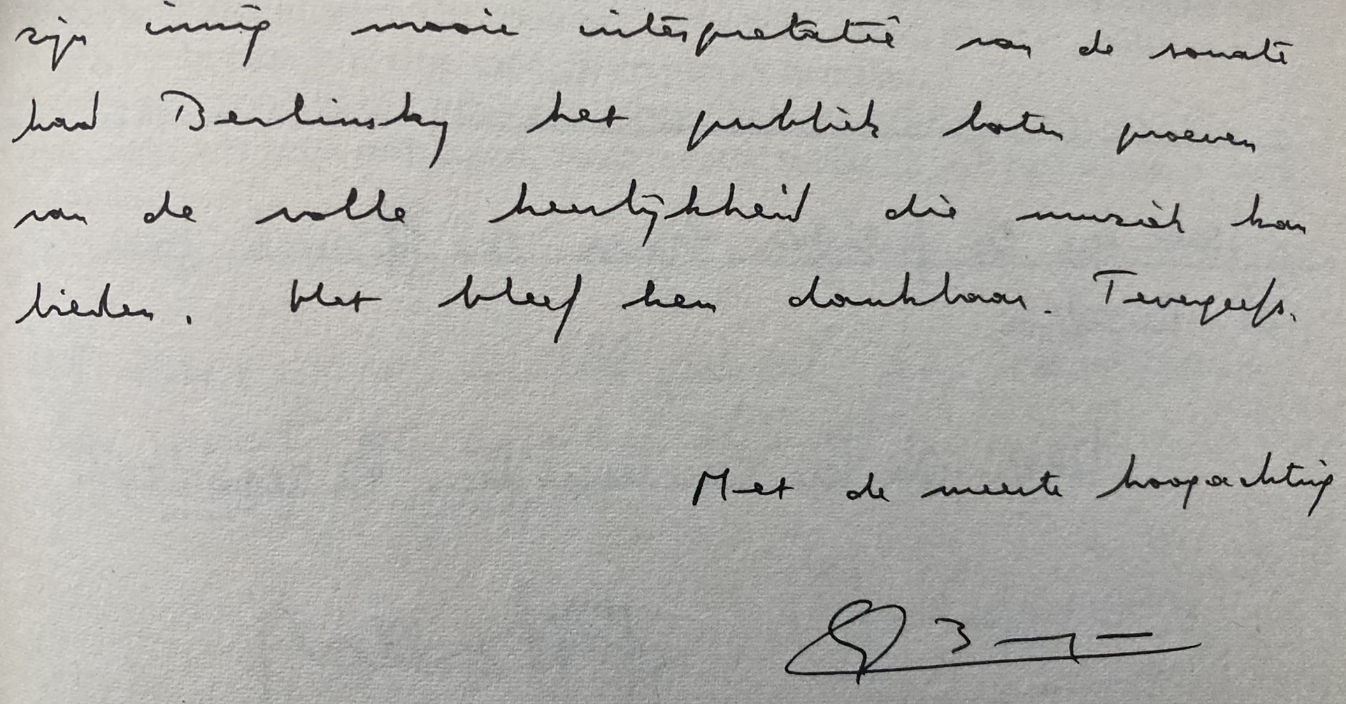 zijn innig mooie interpretatie van de sonate
had Berlinsky het publiek laten proeven
van de volle heerlijkheid die muziek kan
bieden. Het bleef hem dankbaar. Tevergeefs.
Met de meeste hoogachting